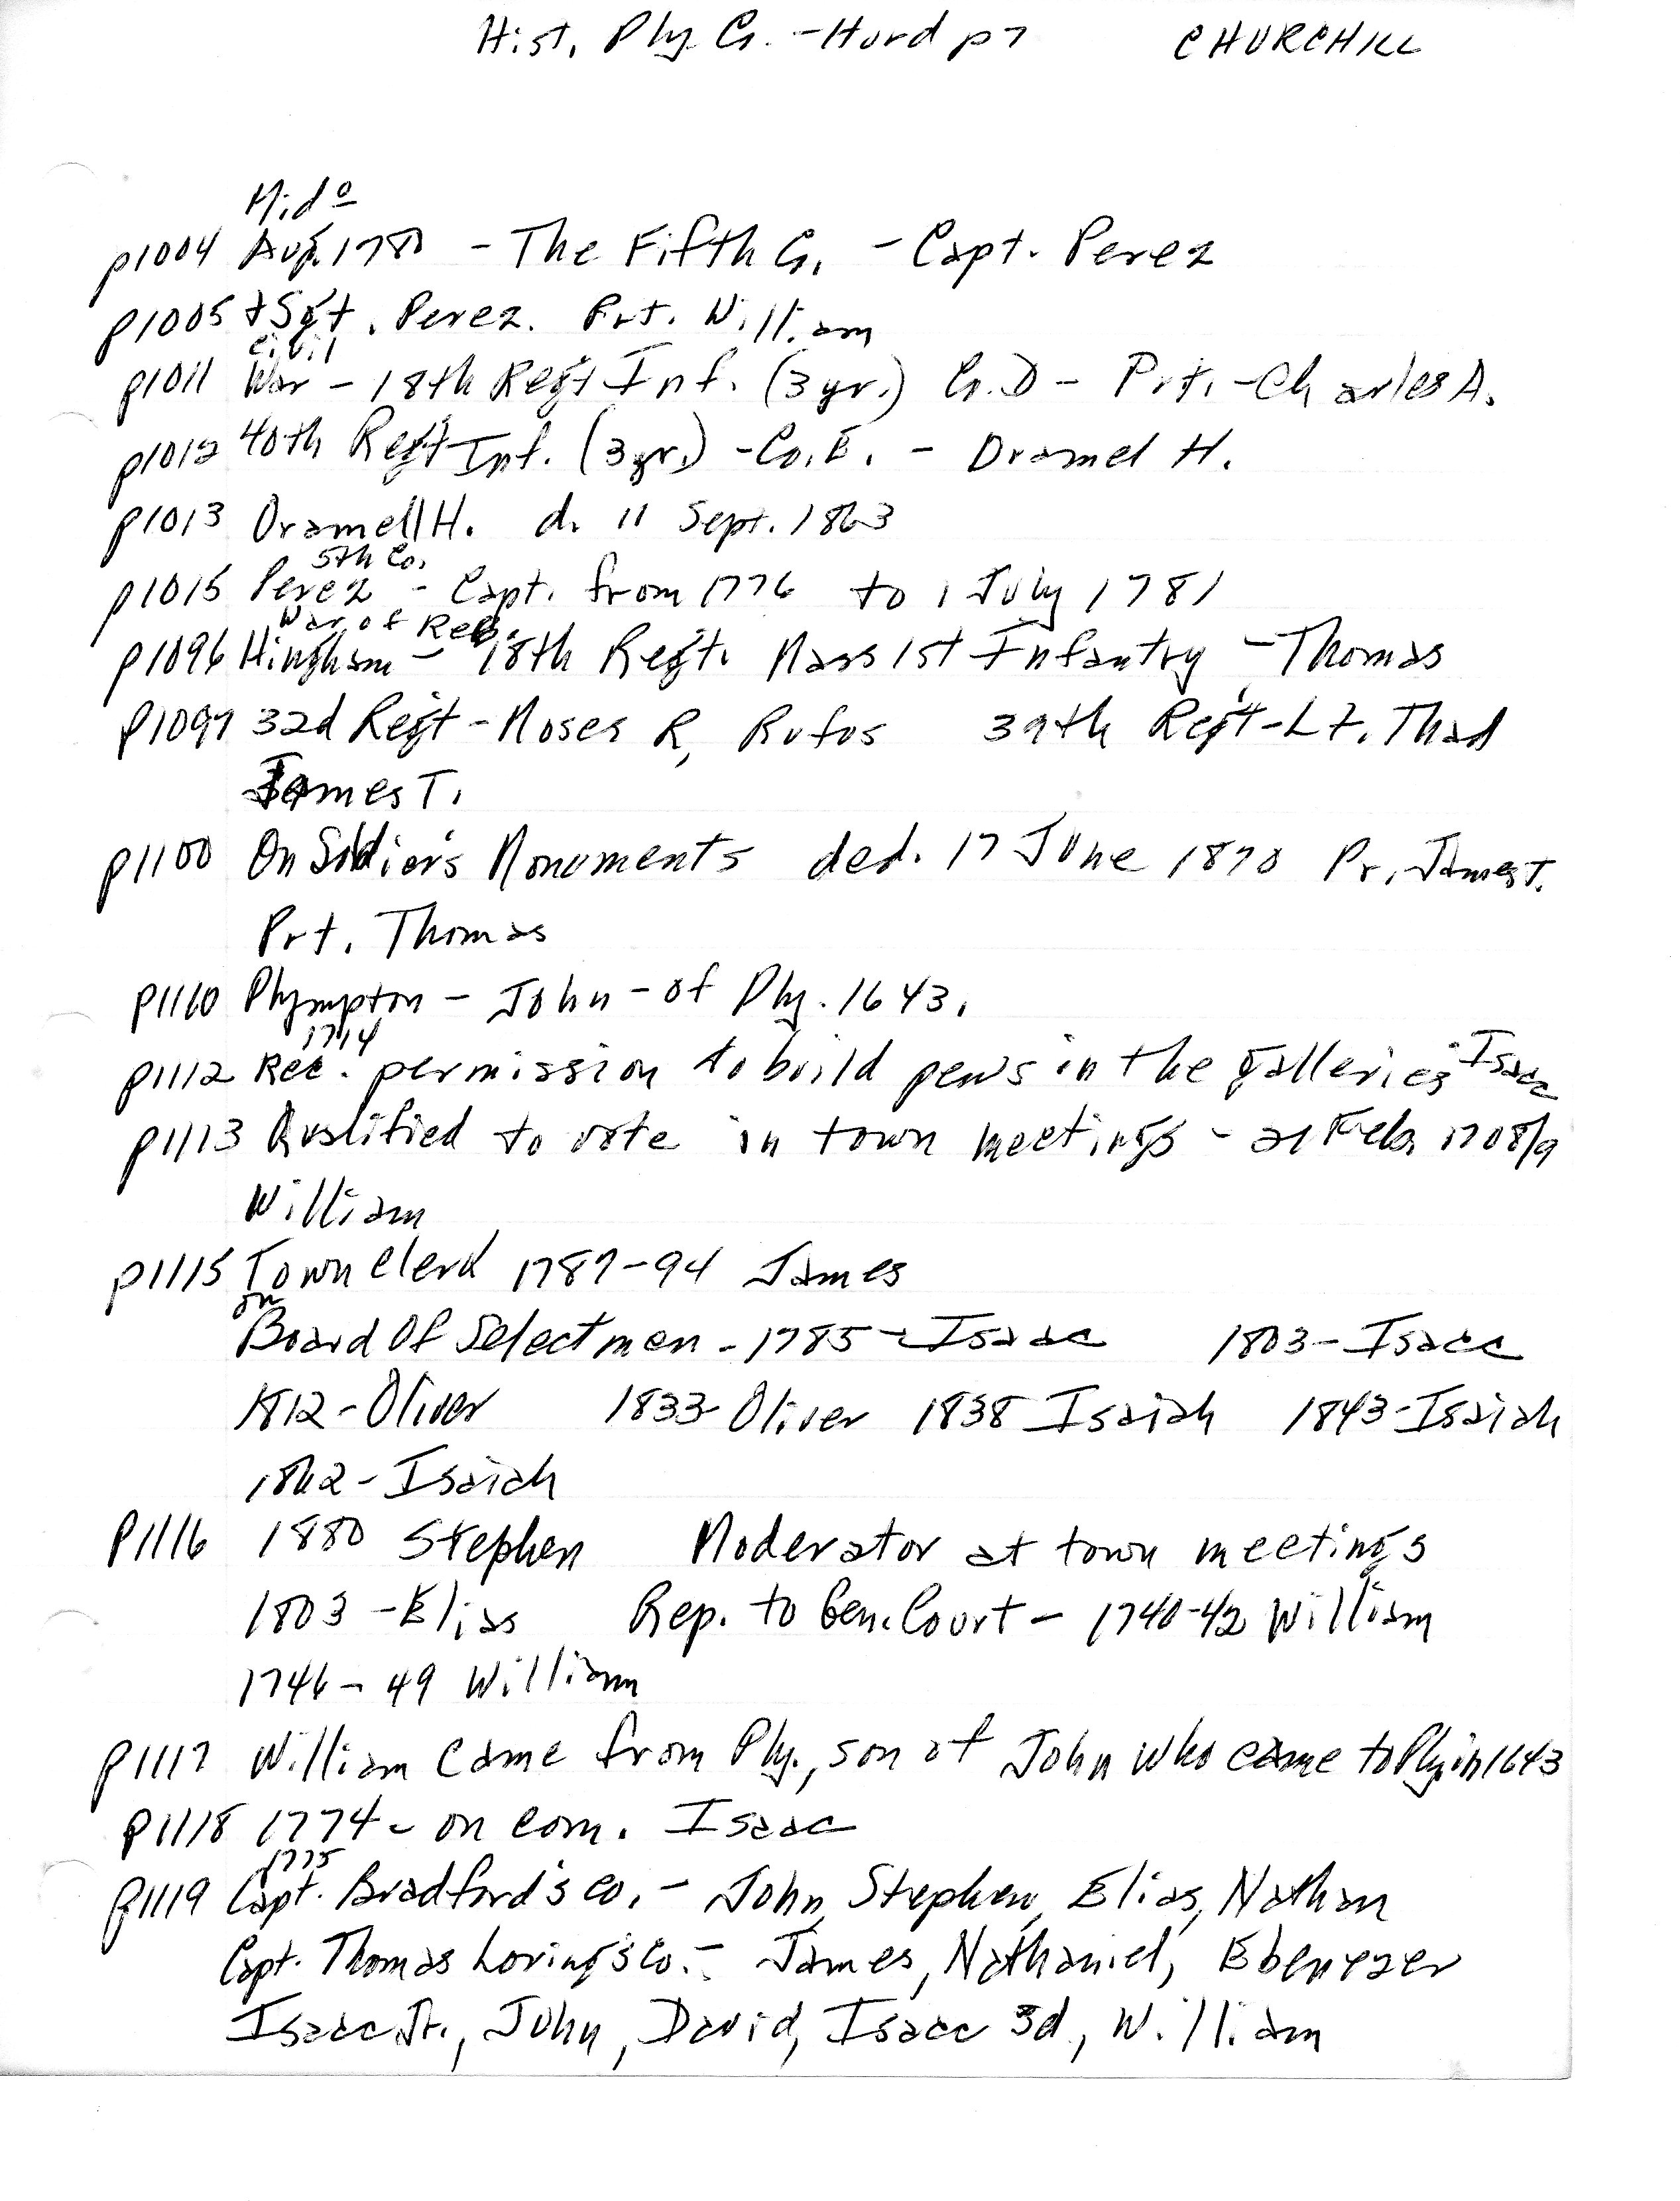 Hist. Ply. Co. - Hurd p7 CHURCHILL
Mido
p1004 Aug. 1780 - The Fifth Co. - Capt. Perez
p1005 + Sgt. Perez. Pvt. William
Civil
p1011 War - 18th Regt Inf. (3 yr.) Co. D - Pvt. - Charles A.
p1012 40th Regt Inf. (3 yr.) - Co. E. - Oramel H.
p1013 Oramell H. d. 11 Sept. 1863
5th Co.
p1015 Perez - Capt. from 1776 to 1 July 1781
War of Reb.
p1096 Hingham - 18th Regt. Mass 1st Infantry - Thomas
p1097 32d Regt - Moses R, Rufus 39th Regt - Lt. Thad
James T.
p1100 On Soldier's Monuments ded. 17 June 1870 Pr. James T.
Pvt. Thomas
p1110 Plympton - John - of Ply. 1643.
1714
p1112 Rec. permission to build pews in the galleries Isaac
p1113 Qualified to vote in town meetings - 21 Feb. 1708/9
William
p1115 Town Clerk 1787-94 James
on
Board Of Selectmen - 1785 - Isaac 1803 - Isaac
1812 - Oliver 1833 - Oliver 1838 Isaiah 1843 - Isaiah
1862 - Isaiah
p1116 1880 Stephen Moderator at town meetings
1803 - Elias Rep. to Gen. Court - 1740-42 William
1746 - 49 William
p1117 William came from Ply., son of John who came to Ply. in 1643
p1118 1774 - on com. Isaac
1775
p1119 Capt. Bradford's co. - John, Stephen, Elias, Nathan
Capt. Thomas Loring's Co. - James, Nathaniel, Ebenezer
Isaac Jr., John, David, Isaac 3d, William